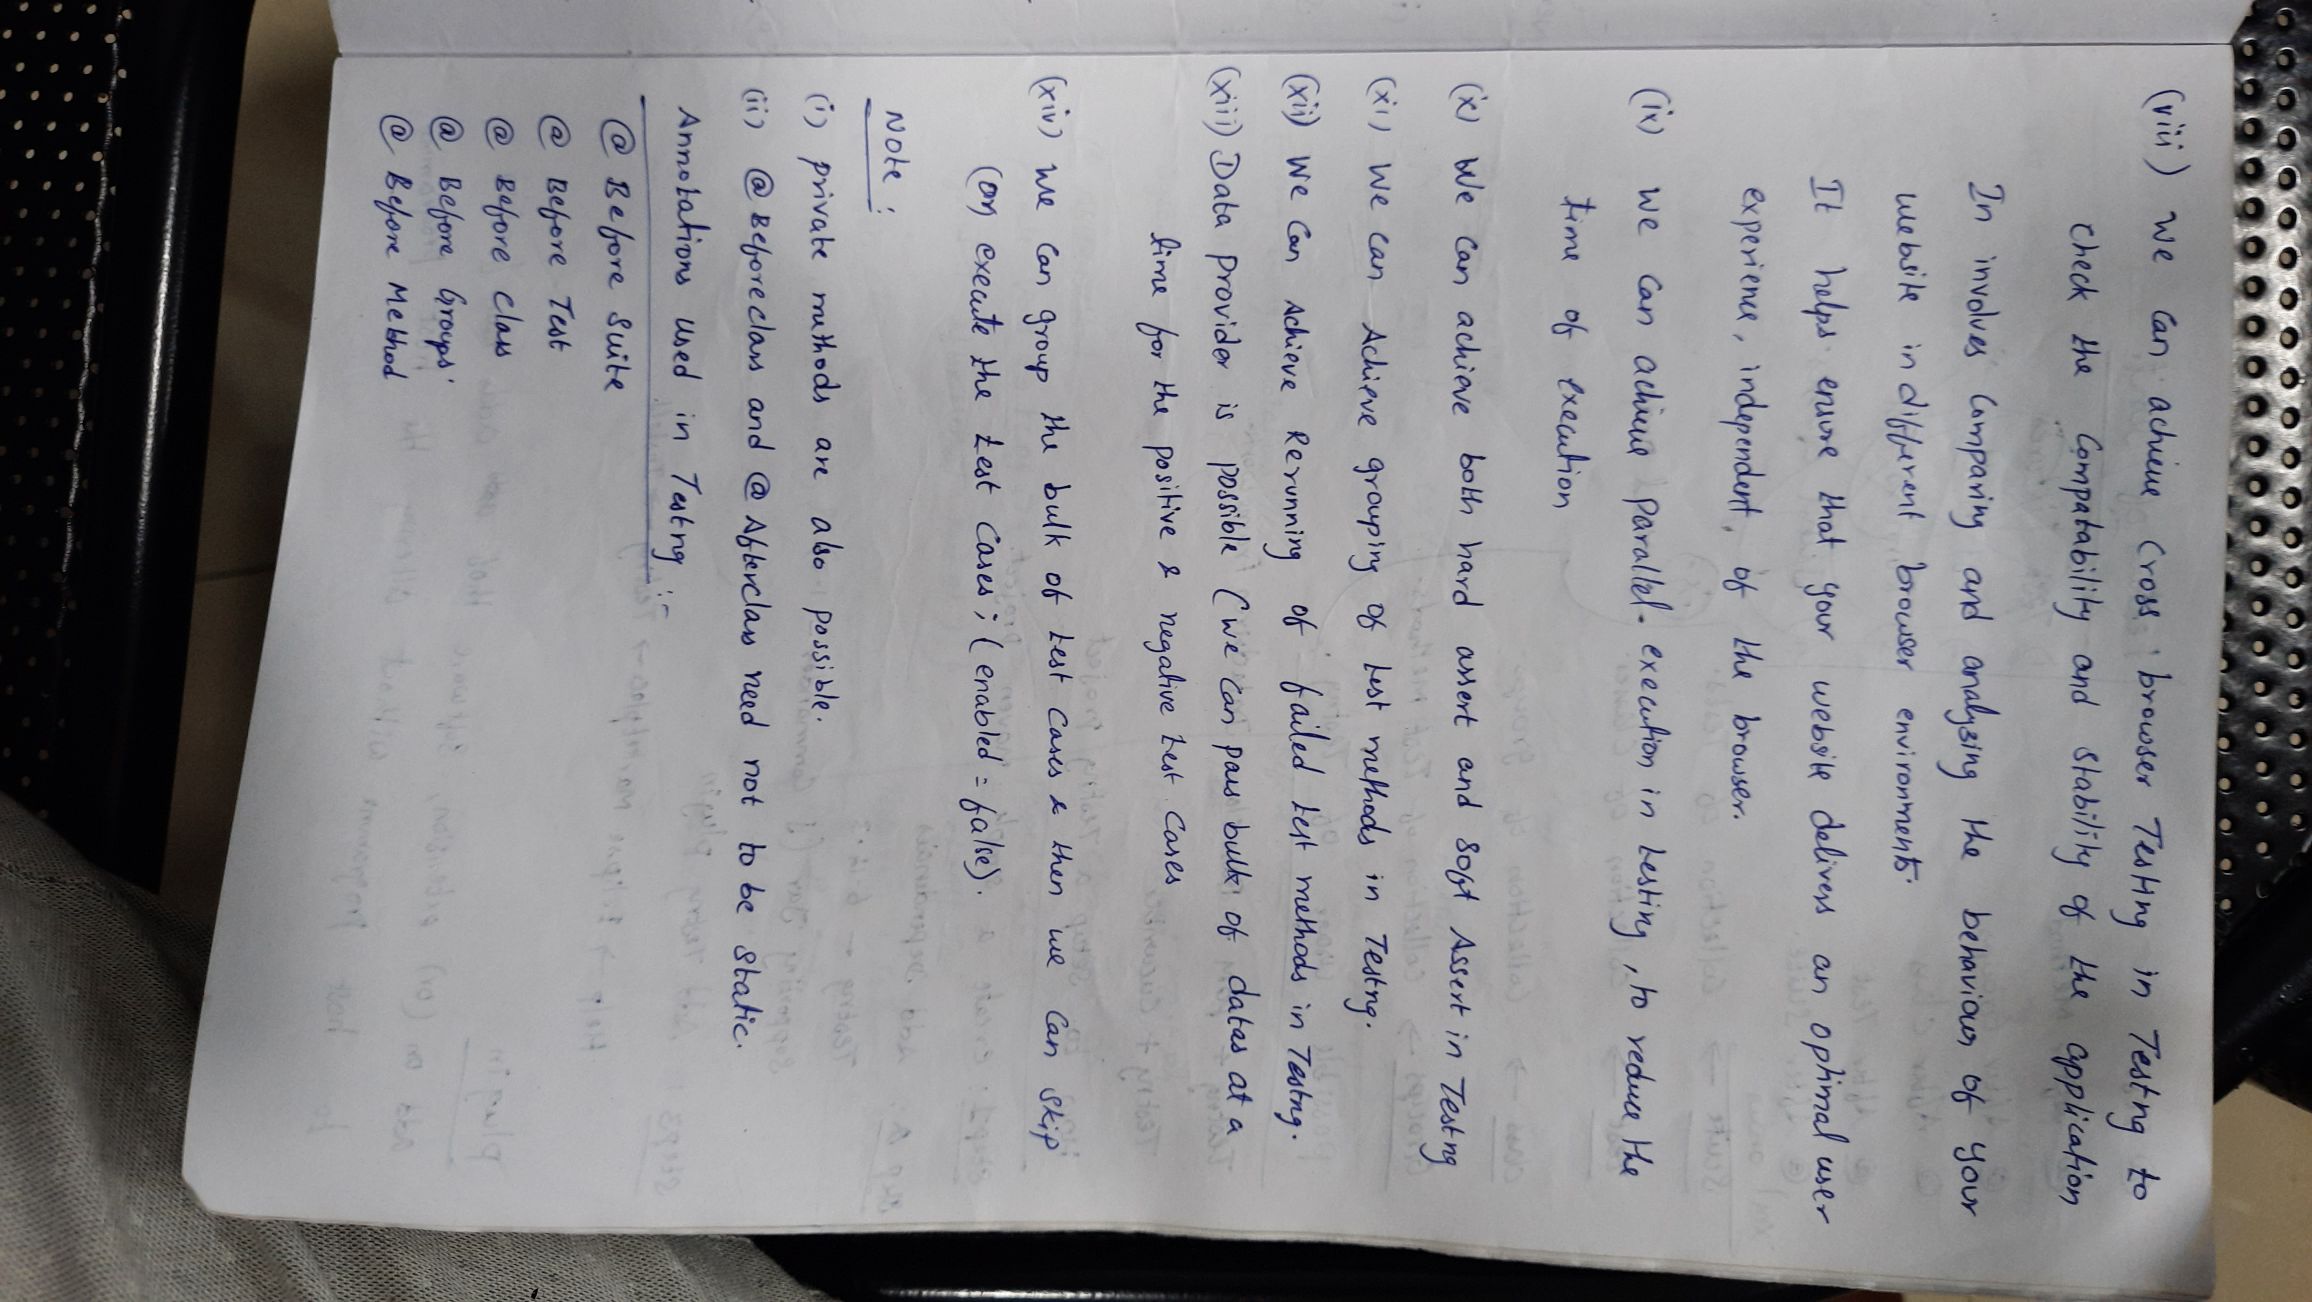 (viii) We can achieve Cross browser Testing in Testng to
check the Compatability and stability of the application
In involves Comparing and analysing the behaviour of your
website in different browser environments.
It helps ensure that your website delivers an optimal user
experience, independent of the browser.
(ix) We can achieve Parallel execution in testing, to reduce the
time of execution
(x) We can achieve both hard assert and soft Assert in Testng
(xi) We can Achieve grouping of test methods in Testng.
(xii) We can Achieve Rerunning of failed test methods in Testng.
(xiii) Data provider is possible (we can pass bulk of datas at a
time for the positive & negative test cases
(xiv) We can group the bulk of test cases & then we can skip
(or) execute the test cases; (enabled = false).
Note :
(i) private methods are also possible.
(ii) @Beforeclass and @Afterclass need not to be static.
Annotations used in Testng :-
@ Before Suite
@ Before Test
@ Before class
@ Before Groups
@ Before Method